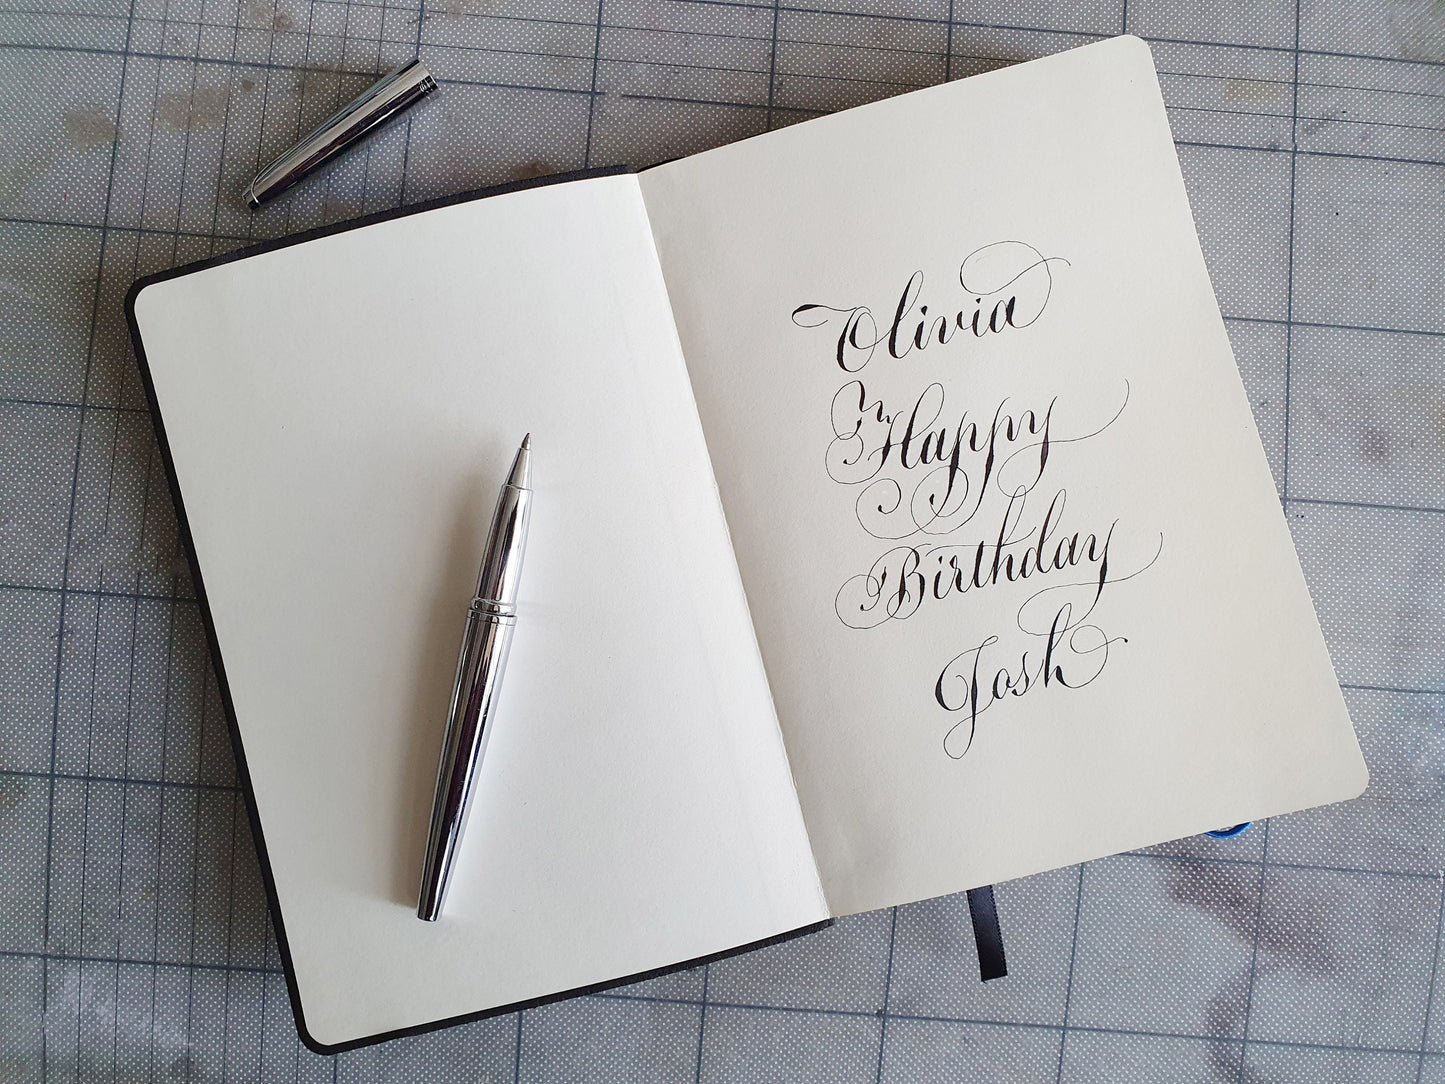 Olivia
Happy
Birthday
Josh